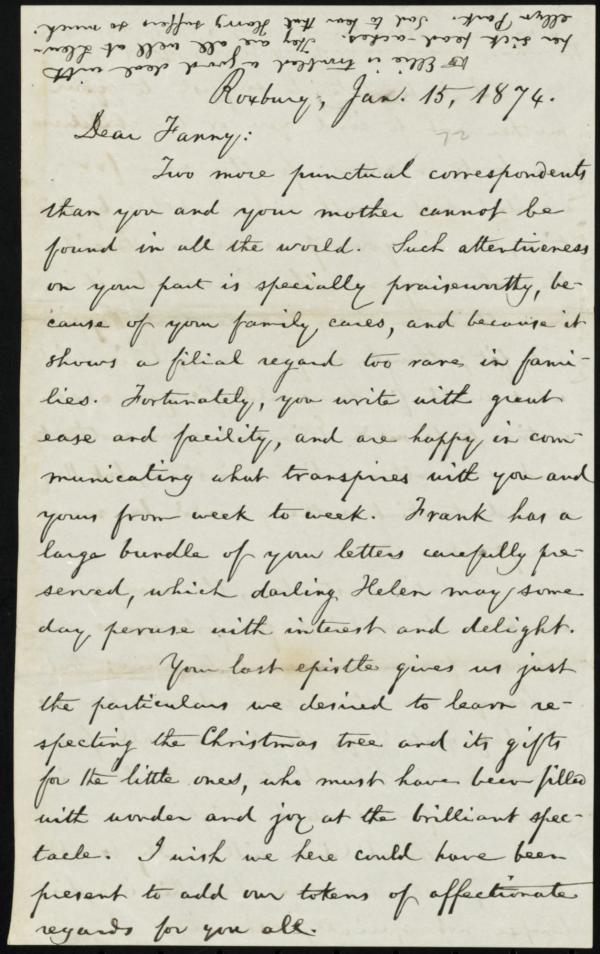 Roxbury, Jan. 15, 1874.
Dear Fanny:
Two more punctual correspondents
than you and your mother cannot be
found in all the world. Such attentiveness
on your part is specially praiseworthy, be-
cause of your family cares, and because it
shows a filial regard too rare in fami-
lies. Fortunately, you write with great
ease and facility, and are happy in com-
municating what transpires with you and
yours from week to week. Frank has a
large bundle of your letters carefully pre-
served, which darling Helen may some
day peruse with interest and delight.
Your last epistle gives us just
the particulars we desired to learn re-
specting the Christmas tree and its gifts
for the little ones, who must have been filled
with wonder and joy at the brilliant spec-
tacle. I wish we here could have been
present to add our tokens of affectionate
regards for you all.
Ellie is troubled a good deal with
her sick head-aches. They are all well at Llew-
ellyn Park. Sad to hear that Harry suffers so much.